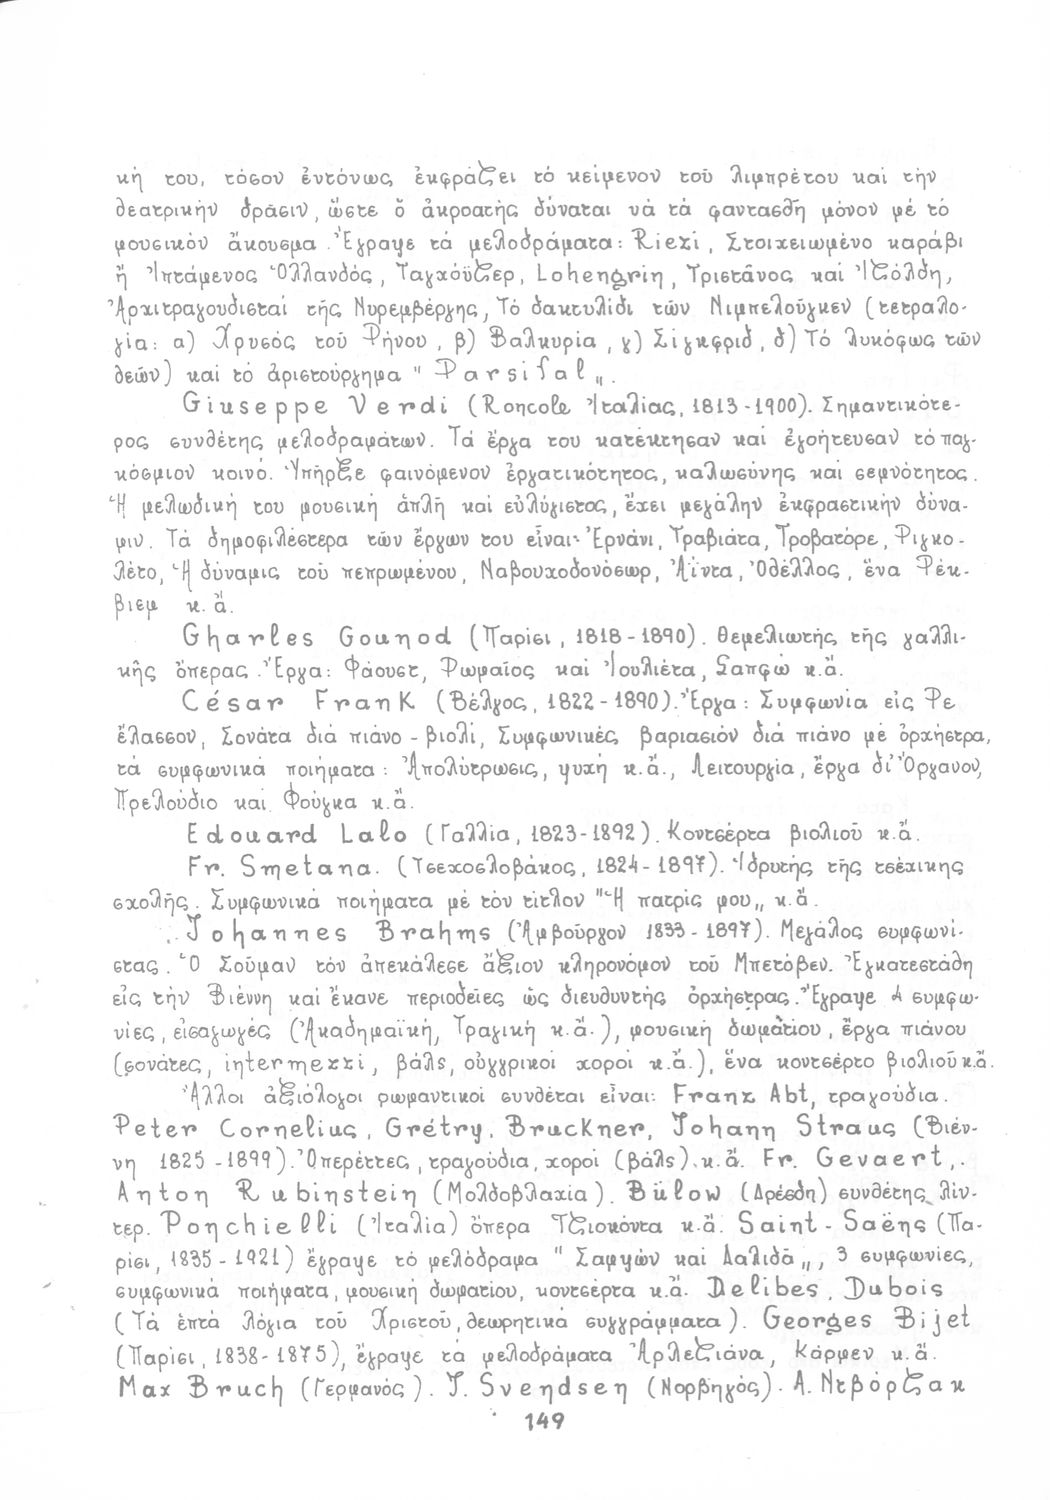 κή του, τόσον ἐντόνως ἐκφράζει τό κείμενον τοῦ λιμπρέτου καί τήν
θεατρικήν δρᾶσιν, ὥστε ὁ ἀκροατής δύναται νά τά φαντασθῆ μόνον μέ τό
μουσικόν ἄκουσμα. Ἔγραψε τά μελοδράματα: Riezi, Στοιχειωμένο καράβι
ἤ Ἱπτάμενος Ὁλλανδός, Ταγχόϋζερ, Lohengrin, Τριστᾶνος καί Ἰζόλδη,
Ἀρχιτραγουδισταί τῆς Νυρεμβέργης, Τό δακτυλίδι τῶν Νιμπελοῦγκεν (τετραλο-
γία: α) Χρυσός τοῦ Ρήνου, β) Βαλκυρία, γ) Σίγκφριδ, δ) Τό λυκόφως τῶν
θεῶν) καί τό ἀριστούργημα " Parsifal „.
Giuseppe Verdi (Roncole Ἰταλίας, 1813-1900). Σημαντικότε-
ρος συνθέτης μελοδραμάτων. Τά ἔργα του κατέκτησαν καί ἐγοήτευσαν τό παγ-
κόσμιον κοινό. Ὑπῆρξε φαινόμενον ἐργατικότητος, καλωσύνης καί σεμνότητος.
Ἡ μελωδική του μουσική ἁπλῆ καί εὐλύγιστος, ἔχει μεγάλην ἐκφραστικήν δύνα-
μιν. Τά δημοφιλέστερα τῶν ἔργων του εἶναι: Ἐρνάνι, Τραβιάτα, Τροβατόρε, Ριγκο-
λέτο, Ἡ δύναμις τοῦ πεπρωμένου, Ναβουχοδονόσωρ, Ἀΐντα, Ὀθέλλος, ἕνα Ρέκ-
βιεμ κ.ἄ.
Gharles Gounod (Παρίσι, 1818-1890). Θεμελιωτής τῆς γαλλι-
κῆς ὄπερας. Ἔργα: Φάουστ, Ρωμαῖος καί Ἰουλιέτα, Σαπφώ κ.ἄ.
César Frank (Βέλγος, 1822-1890). Ἔργα: Συμφωνία εἰς Ρε
ἔλασσον, Σονάτα διά πιάνο - βιολί, Συμφωνικές βαριασιόν διά πιάνο μέ ὀρχήστρα,
τά συμφωνικά ποιήματα: Ἀπολύτρωσις, ψυχή κ.ἄ., Λειτουργία, ἔργα δι' Ὄργανον,
Πρελούδιο καί Φούγκα κ.ἄ.
Edouard Lalo (Γαλλία, 1823-1892). Κοντσέρτα βιολιοῦ κ.ἄ.
Fr. Smetana. (Τσεχοσλοβάκος, 1824-1897). Ἱδρυτής τῆς τσέχικης
σχολῆς. Συμφωνικά ποιήματα μέ τόν τίτλον "Ἡ πατρίς μου„ κ.ἄ.
Johannes Brahms (Ἀμβούργον 1833-1897). Μεγάλος συμφωνί-
στας. Ὁ Σοῦμαν τόν ἀπεκάλεσε ἄξιον κληρονόμον τοῦ Μπετόβεν. Ἐγκατεστάθη
εἰς τήν Βιέννη καί ἔκανε περιοδεῖες ὡς διευθυντής ὀρχήστρας. Ἔγραψε 4 συμφω-
νίες, εἰσαγωγές (Ἀκαδημαϊκή, Τραγική κ.ἄ.), μουσική δωματίου, ἔργα πιάνου
(σονάτες, intermezzi, βάλς, οὑγγρικοί χοροί κ.ἄ.), ἕνα κοντσέρτο βιολιοῦ κ.ἄ.
Ἄλλοι ἀξιόλογοι ρωμαντικοί συνθέται εἶναι: Franz Abt, τραγούδια.
Peter Cornelius, Grétry, Bruckner, Johann Straus (Βιέν-
νη 1825-1899). Ὀπερέττες, τραγούδια, χοροί (βάλς). κ.ἄ. Fr. Gevaert,.
Anton Rubinstein (Μολδοβλαχία). Bülow (Δρέσδη) συνθέτης, λίν-
τερ. Ponchielli (Ἰταλία) ὄπερα Τζιοκόντα κ.ἄ. Saint-Saëns (Πα-
ρίσι, 1835-1921) ἔγραψε τό μελόδραμα " Σαμψών καί Δαλιδᾶ„, 3 συμφωνίες,
συμφωνικά ποιήματα, μουσική δωματίου, κοντσέρτα κ.ἄ. Delibes, Dubois
(Τά ἑπτά λόγια τοῦ Χριστοῦ, θεωρητικά συγγράμματα). Georges Bijet
(Παρίσι, 1838-1875), ἔγραψε τά μελοδράματα Ἀρλεζιάνα, Κάρμεν κ.ἄ.
Max Bruch (Γερμανός). J. Svendsen (Νορβηγός). Α. Ντβόρζακ
149